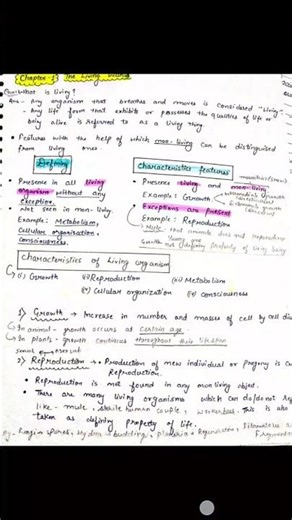 Chapter-1 The Living World
Ques- What is living?
Ans - Any organism that breathes and moves is considered "living".
- Any life form that exhibits or possesses the qualities of life or
being alive is referred to as a living thing
• Features with the help of which non-living can be distinguised
from living ones.
Defining
Characteristics features
• Presence in all living
organism without any
exception.
• Not seen in non-living.
Example: Metabolism,
Cellular organisation,
consciousness.
• Presence living and non-living
Example: Growth
Exceptions are present
Example: Reproduction
Growth not defining property of living being
Characteristics of Living organism
(i) Growth (ii) Reproduction (iii) Metabolism
(iv) Cellular organization (v) consciousness
1) Growth → Increase in number and masses of cell by cell
In animal - growth occurs at certain age.
In plants - growth continues throughout their lifespan
2) Reproduction → • Production of new individual or progeny is
Reproduction.
• Reproduction is not found in any non living object.
• There are many living organisms which can do/not
like - mule, sterile human couple, worker bee. This is also
taken as defining property of life.
eg - Fungi - spores, Hydra - budding, planaria - Regeneration,